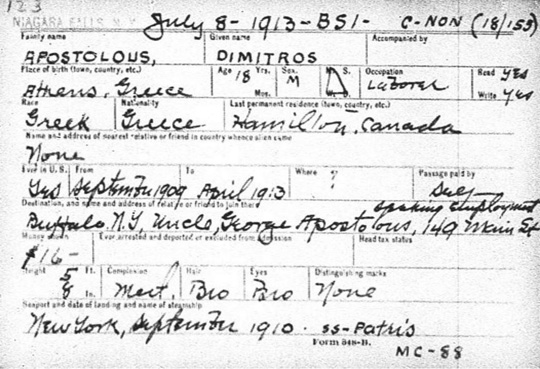 123
NIAGARA FALLS, N.Y. July 8 - 1913 - BSI - C-NON (18/153)
Family name Given name Accompanied by
APOSTOLOUS, DIMITROS
Place of birth (town, country, etc.) Age 18 Yrs. Sex. M. S. Occupation Read yes
Athens, Greece Mos. M W. D. Laborer Write yes
Race Nationality Last permanent residence (town, country, etc.)
Greek Greece Hamilton, Canada
Name and address of nearest relative or friend in country whence alien came
None
Ever in U.S. From To Where Passage paid by
Yes September 1909 April 1913 ? Self
Destination, and name and address of relative or friend to join there seeking employment
Buffalo, N.Y, Uncle, George Apostolous, 149 Main St
Money shown Ever arrested and deported or excluded from admission Head tax status
$16-
Height 5 Ft. Complexion Hair Eyes Distinguishing marks
8 In. Med. Bro Bro None
Seaport and date of landing and name of steamship
New York, September 1910 - SS-Patris
Form 548-B.
MC-88